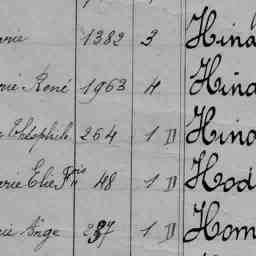 rie 1382 3 Hina
rie René 1963 4 Hina
Théophile 264 1 D Hina
rie Elie Fois 48 1 D Hod
rie Ange 237 1 D Hom